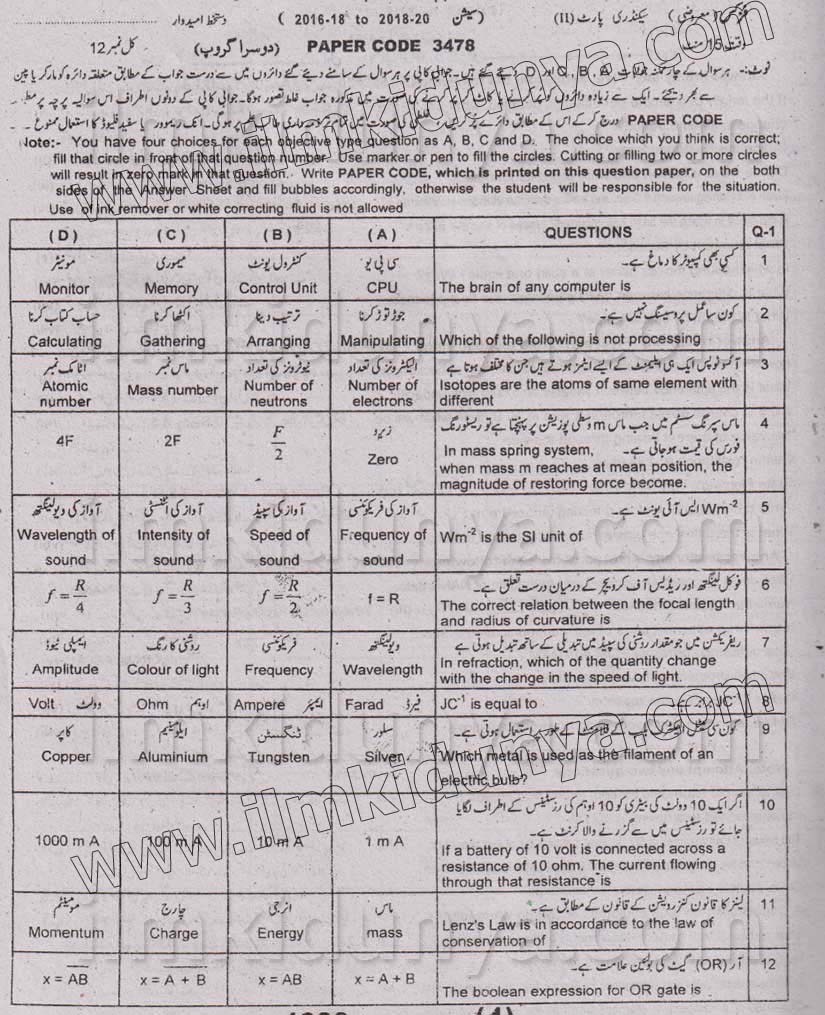 فزکس (معروضی) سیکنڈری پارٹ (II) (سیشن 2016-18 to 2018-20) دستخط امیدوار
وقت 15 منٹ PAPER CODE 3478 (دوسرا گروپ) کل نمبر 12
نوٹ:- ہر سوال کے چار ممکنہ جوابات A ، B ، C اور D دیئے گئے ہیں۔ جوابی کاپی پر ہر سوال کے سامنے دیئے گئے دائروں میں سے درست جواب کے مطابق متعلقہ دائرہ کو مارکر یا پین
سے بھر دیجئے۔ ایک سے زیادہ دائروں کو پُر کرنے یا کاٹ کر پُر کرنے کی صورت میں مذکورہ جواب غلط تصور ہوگا۔ جوابی کاپی کے دونوں اطراف اس سوالیہ پرچہ پر
PAPER CODE درج کر کے اس کے مطابق دائرے پُر کریں، کی صورت میں تمام تر ذمہ داری طالب علم پر ہوگی۔ انک ریموور یا سفید فلیوڈ کا استعمال ممنوع
Note:- You have four choices for each objective type question as A, B, C and D. The choice which you think is correct;
fill that circle in front of that question number. Use marker or pen to fill the circles. Cutting or filling two or more circles
will result in zero mark in that question. Write PAPER CODE, which is printed on this question paper, on the both
sides of the Answer Sheet and fill bubbles accordingly, otherwise the student will be responsible for the situation.
Use of ink remover or white correcting fluid is not allowed
(D) (C) (B) (A) QUESTIONS Q-1
مونیٹر میموری کنٹرول یونٹ سی پی یو کسی بھی کمپیوٹر کا دماغ ہے۔ 1
Monitor Memory Control Unit CPU The brain of any computer is
حساب کتاب کرنا اکٹھا کرنا ترتیب دینا جوڑ توڑ کرنا کون سا عمل پروسیسنگ نہیں ہے۔ 2
Calculating Gathering Arranging Manipulating Which of the following is not processing
اٹامک نمبر ماس نمبر نیوٹرونز کی تعداد الیکٹرونز کی تعداد آئسوٹوپس ایک ہی ایلیمنٹ کے ایسے ایٹمز ہوتے ہیں جن کا مختلف ہوتا ہے 3
Atomic number Mass number Number of neutrons Number of electrons Isotopes are the atoms of same element with
different
زیرو ماس سپرنگ سسٹم میں جب ماس m وسطی پوزیشن پر پہنچتا ہے تو ریسٹورنگ 4
فورس کی قیمت ہو جاتی ہے۔
4F 2F F/2 Zero In mass spring system,
when mass m reaches at mean position, the
magnitude of restoring force become.
آواز کی ویولینگتھ آواز کی انٹنسٹی آواز کی سپیڈ آواز کی فریکوئنسی Wm⁻² ایس آئی یونٹ ہے۔ 5
Wavelength of sound Intensity of sound Speed of sound Frequency of sound Wm⁻² is the SI unit of
فوکل لینگتھ اور ریڈیس آف کرویچر کے درمیان درست تعلق ہے۔ 6
f = R/4 f = R/3 f = R/2 f = R The correct relation between the focal length
and radius of curvature is
ایمپلی ٹیوڈ روشنی کا رنگ فریکوئنسی ویولینگتھ ریفریکشن میں جو مقدار روشنی کی سپیڈ میں تبدیلی کے ساتھ تبدیل ہوتی ہے 7
Amplitude Colour of light Frequency Wavelength In refraction, which of the quantity change
with the change in the speed of light.
Volt وولٹ Ohm اوہم Ampere ایمپئر Farad فیرڈ JC⁻¹ is equal to JC⁻¹ برابر ہے۔ 8
کاپر ایلومینیم ٹنگسٹن سلور کون سی میٹل الیکٹرک بلب کے فلامنٹ کے طور پر استعمال ہوتی ہے۔ 9
Copper Aluminium Tungsten Silver Which metal is used as the filament of an
electric bulb?
اگر ایک 10 وولٹ کی بیٹری کو 10 اوہم کی رزسٹینس کے اطراف لگایا 10
جائے تو رزسٹینس میں سے گزرنے والا کرنٹ ہے۔
1000 m A 100 m A 10 m A 1 m A If a battery of 10 volt is connected across a
resistance of 10 ohm. The current flowing
through that resistance is
مومینٹم چارج انرجی ماس لینز کا قانون کنزرویشن کے قانون کے مطابق ہے۔ 11
Momentum Charge Energy mass Lenz's Law is in accordance to the law of
conservation of
آر (OR) گیٹ کی بولین علامت ہے۔ 12
x = A̅B̅ x = A̅ ̅+̅ ̅B̅ x = AB x = A + B The boolean expression for OR gate is
www.ilmkidunya.com
www.ilmkidunya.com
www.ilmkidunya.com
ilmkidunya.com